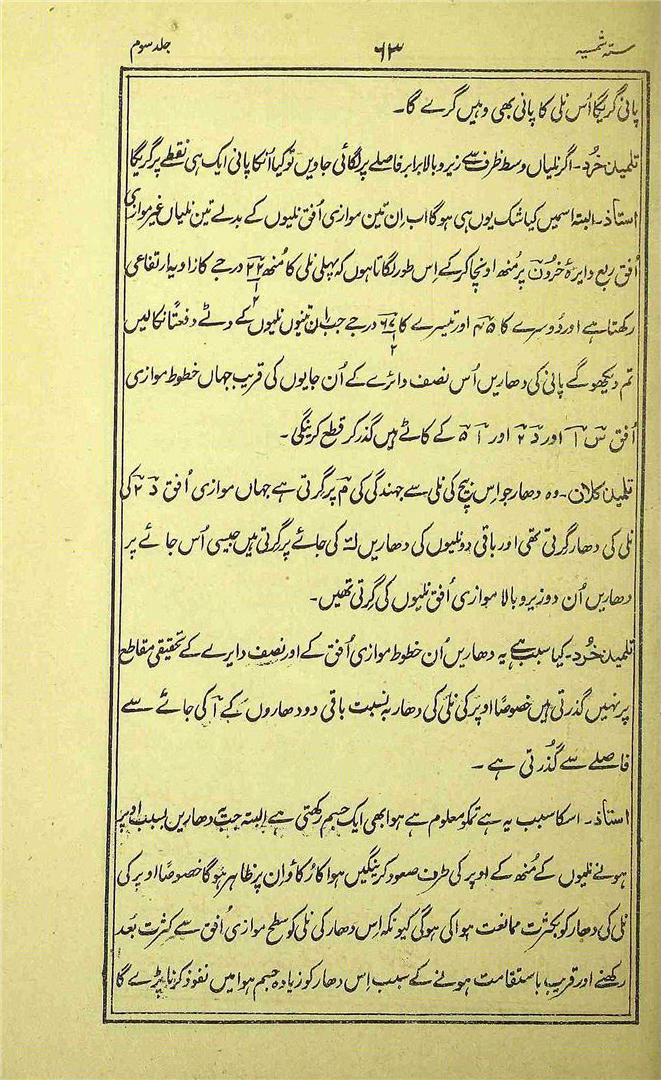 ستہ شمسیہ ۶۳ جلد سوم
پانی گریگا اُس نلی کا پانی بھی وہیں گرے گا۔
تلمیذ خُرد۔ اگر نلیاں وسط ظرف سے زیر و بالا برابر فاصلے پر لگائی جاویں تو کیا اُنکا پانی ایک ہی نقطے پر گریگا
استاذ۔ البتہ اسمیں کیا شک یوں ہی ہوگا اب اِن تین موازی اُفق نلیوں کے بدلے تین نلیاں غیر موازی
اُفق ربع دایرۂ خرون پر مُنھ اونچا کر کے اِس طور لگاتا ہوں کہ پہلی نلی کا مُنھ ۲۲ ۱/۲ درجے کا زاویہ ارتفاعی
رکھتا ہے اور دُوسرے کا ۴۵ اور تیسرے کا ۶۷ ۱/۲ درجے جب ان تینوں نلیوں کے دٹے دفعتاً نکالیں
تم دیکھو گے پانی کی دھاریں اُس نصف دائرے کے اُن جایوں کی قریب جہاں خطوط موازی
اُفق س ا اور د ۲ اور ا ۵ کے کاٹے ہیں گذر کر قطع کرینگی۔
تلمیذ کلان۔ وہ دھار جو اِس بیچ کی نلی سے جہندگی کی م پر گرتی ہے جہاں موازی اُفق د ۲ کی
نلی کی دھار گرتی تھی اور باقی دو نلیوں کی دھاریں لا کی جائے پر گرتی ہیں جیسی اُس جائے پر
دھاریں اُن دو زیر و بالا موازی اُفق نلیوں کی گرتی تھیں۔
تلمیذ خُرد۔ کیا سبب ہے یہ دھاریں اُن خطوط موازی اُفق کے اور نصف دایرے کے تحقیقی مقاطع
پر نہیں گذرتی ہیں خصوصًا اوپر کی نلی کی دھار بہ نسبت باقی دو دھاروں کے ا کی جائے سے
فاصلے سے گُذرتی ہے۔
استاذ۔ اسکا سبب یہ ہے تمکو معلوم ہے ہوا بھی ایک جسم رکھتی ہے البتہ جب یہ دھاریں بسبب اوپر
ہونے نلیوں کے مُنھ کے اوپر کی طرف صعود کرینگیں ہوا کا رُکاؤ اِن پر ظاہر ہوگا خصوصًا اوپر کی
نلی کی دھار کو بکثرت ممانعت ہوا کی ہوگی کیونکہ اِس دھار کی نلی کو سطح موازی اُفق سے کثرت بُعد
رکھنے اور قریب باستقامت ہونے کے سبب اِس دھار کو زیادہ جسم ہوا میں نفوذ کرنا پڑے گا